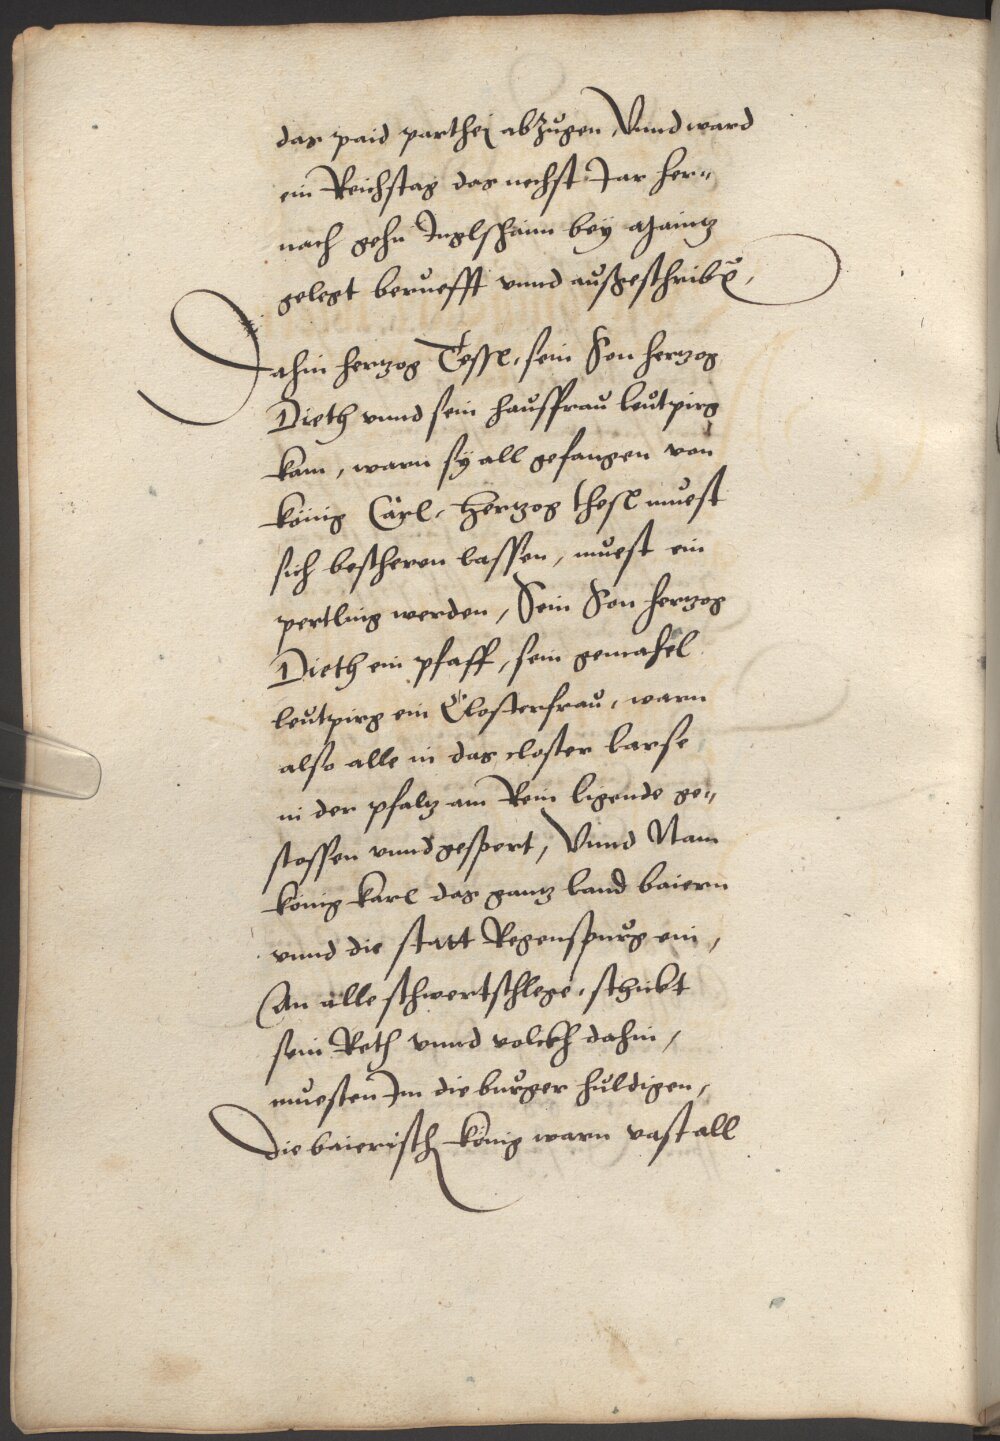 das paid parthej abzugen, Vnnd ward
ein Reichstag das nechst Jar her„
nach gehn Inglshaim bey Maintz
gelegt beruefft vnnd außgeschribn̄,
Dahin hertzog Tessl, sein Son hertzog
Dieth vnnd sein hauffrau leutpirg
kam, warn sy all gefangen von
könig Carl, Hertzog thesl muest
sich bescheren lassen, muest ein
pertling werden, Sein Son hertzog
Dieth ein pfaff, sein gemahel
leutpirg ein Closterfrau, warn
also alle in das closter larse
in der pfaltz am Rein ligende ge„
stossen vnnd gespert, Vnnd Nam
könig karl das gantz land baiern
vnnd die statt Regenspurg ein,
An alle schwertschlege, schickt
sein Reth vnnd volckh dahin,
muesten Im die burger huldigen,
Die baierisch könig warn vast all